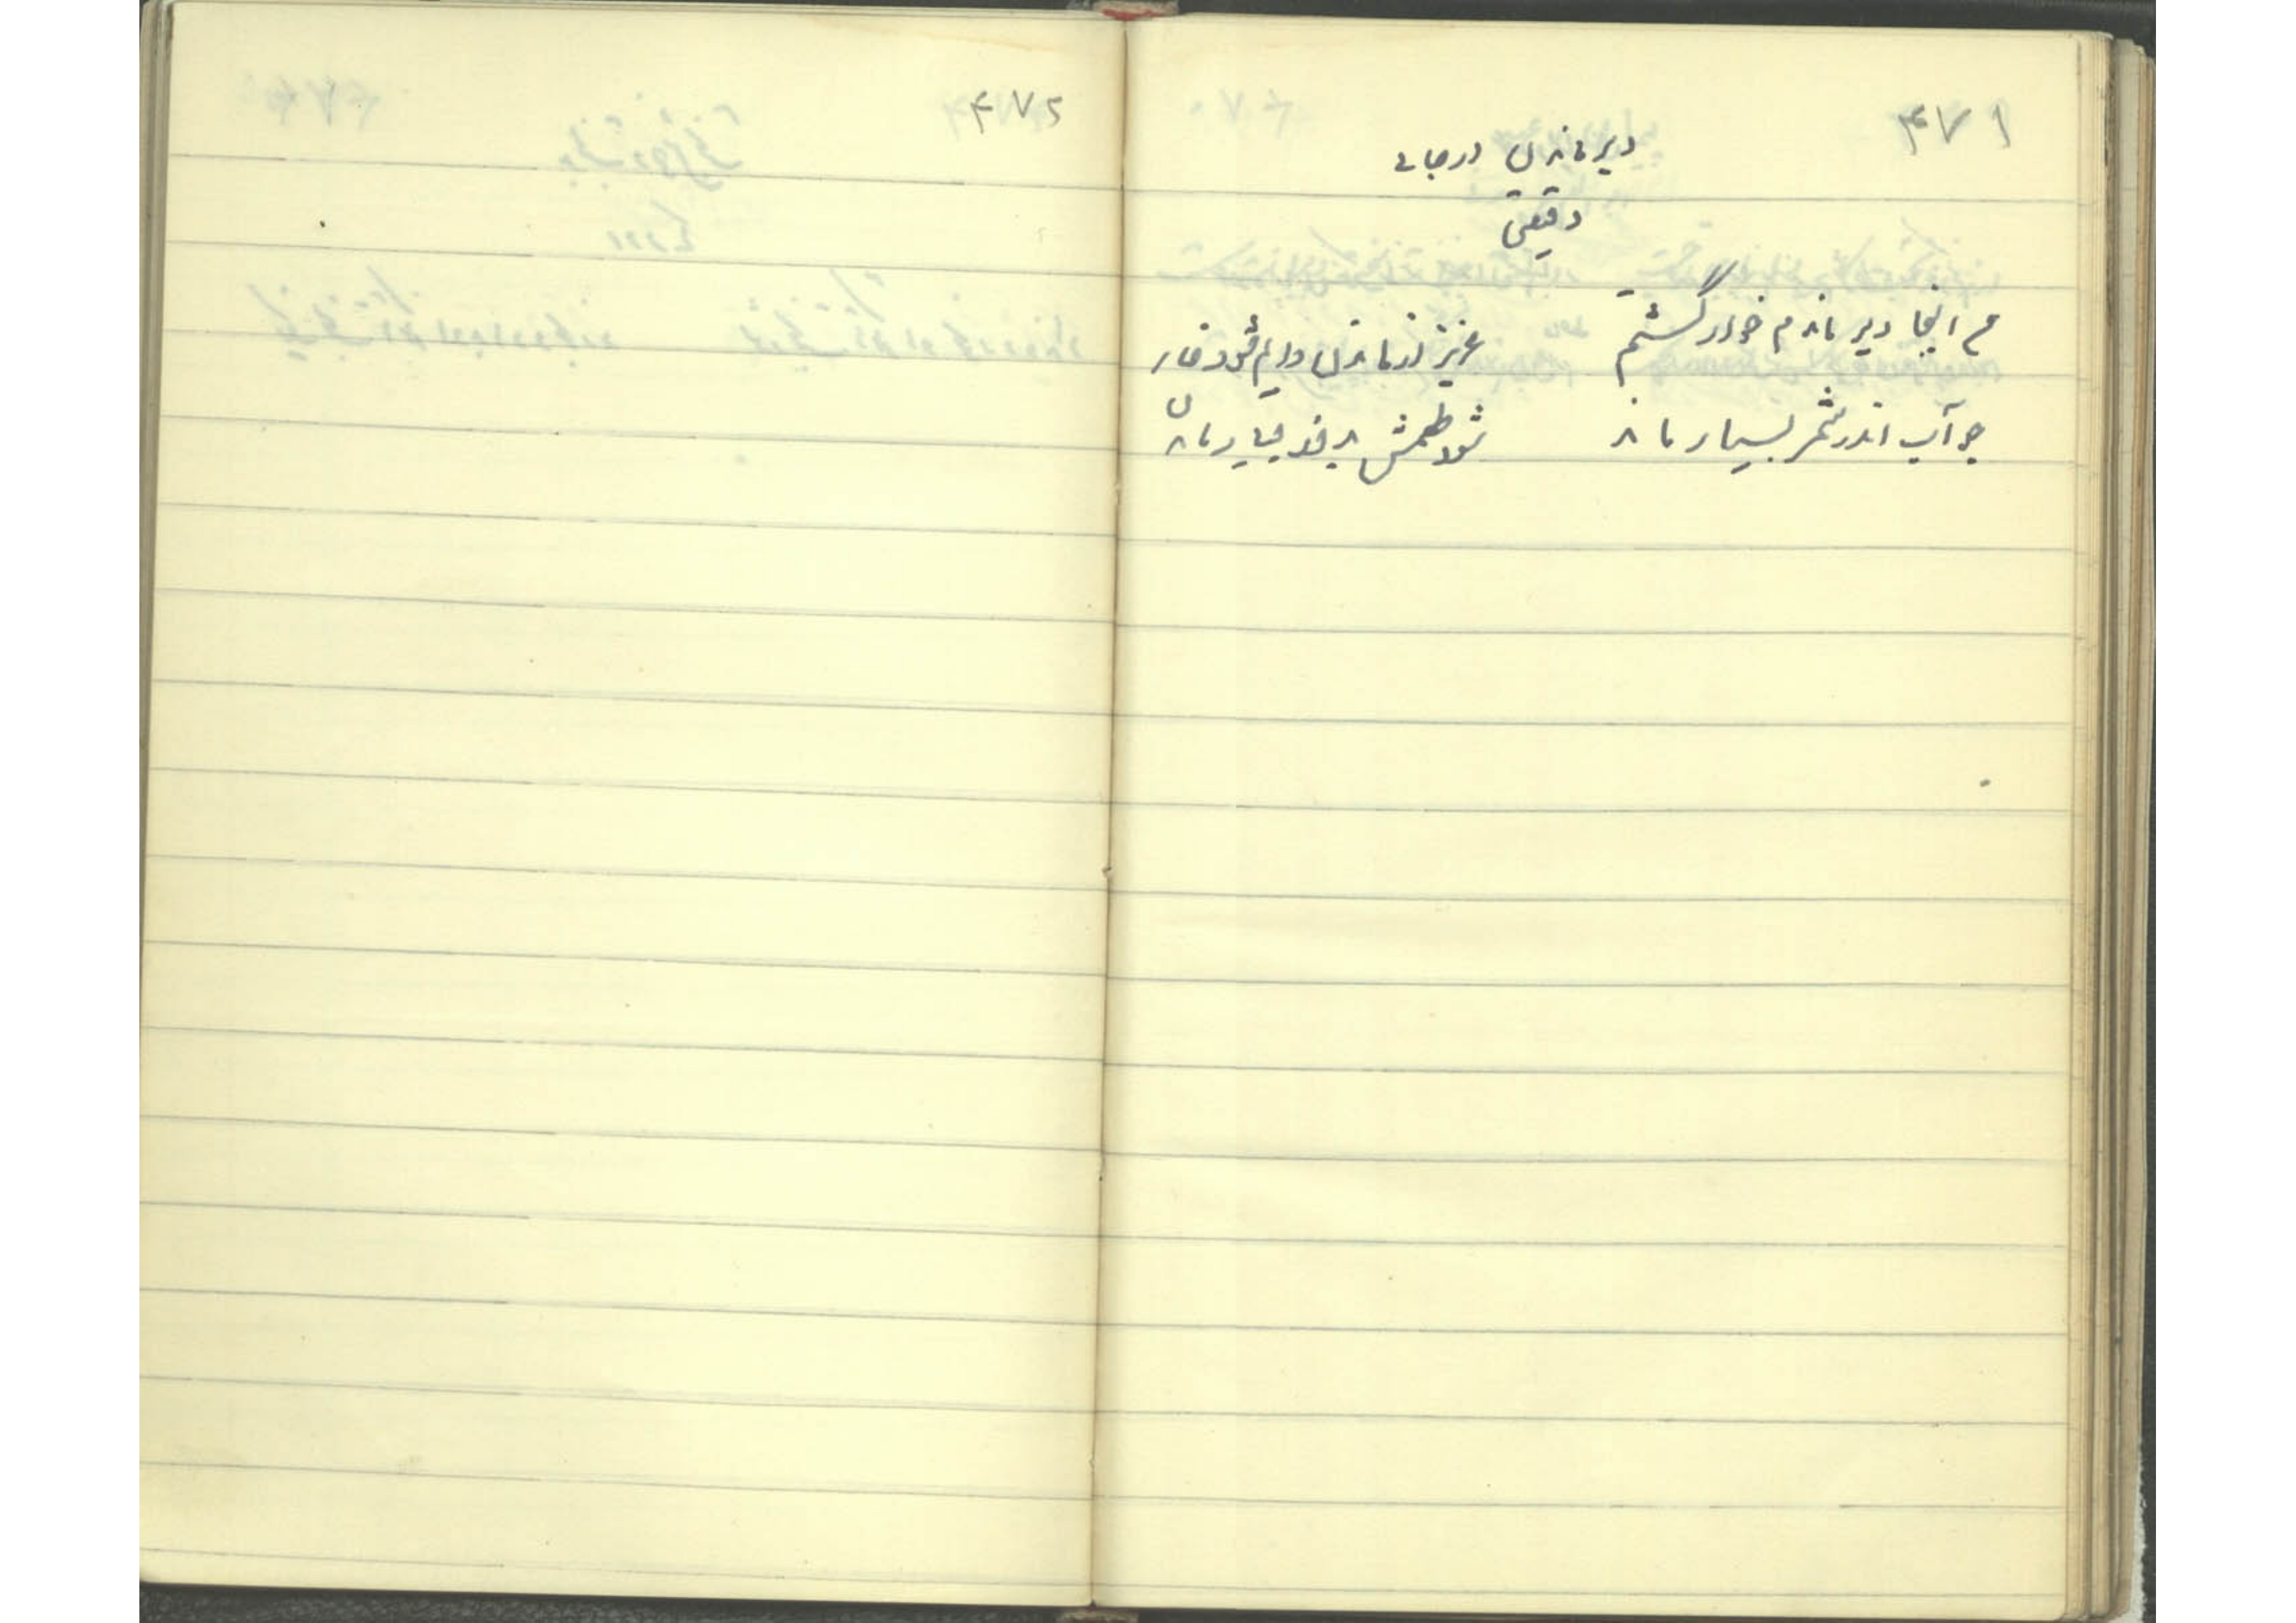 ۴۷۱
دیر ماندن در جایی
دقیقی
من اینجا دیر ماندم خوار گشتم عزیز از ماندن دایم شود خوار
چو آب اندر شمر بسیار ماند شود طعمش بد از
۴۷۲